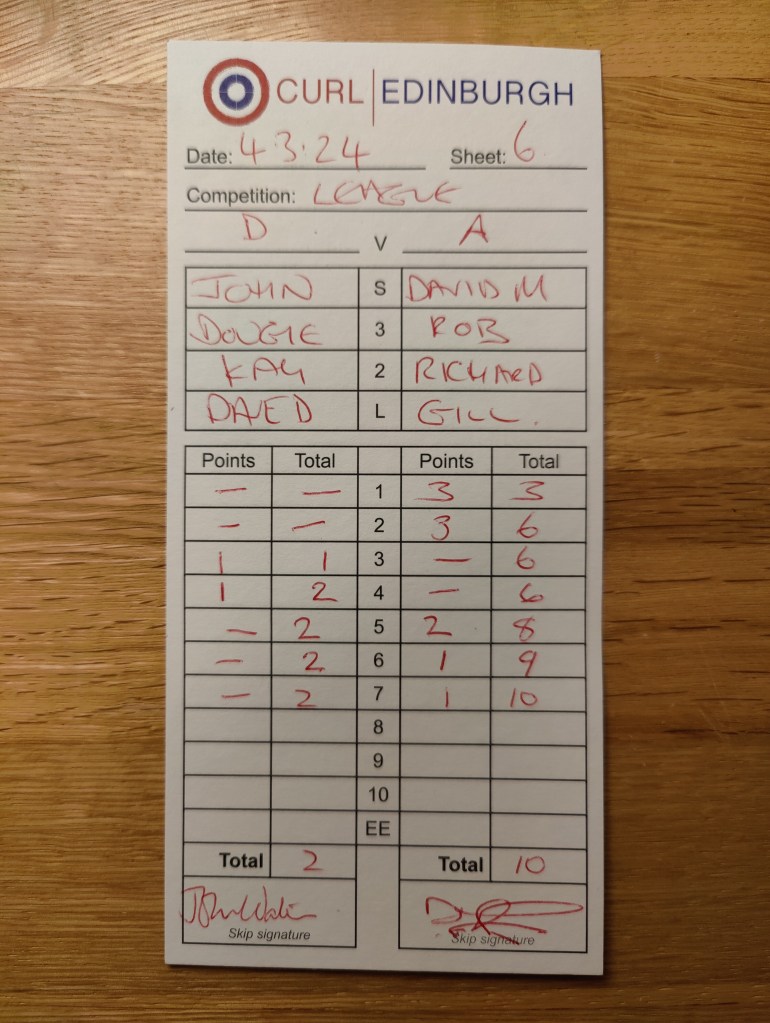 CURL EDINBURGH
Date: 4.3.24 Sheet: 6
Competition: LEAGUE
D V A
JOHN S DAVID M
DOUGIE 3 ROB
KAY 2 RICHARD
DAVE D L GILL.
Points Total Points Total
— — 1 3 3
— — 2 3 6
1 1 3 — 6
1 2 4 — 6
— 2 5 2 8
— 2 6 1 9
— 2 7 1 10
8
9
10
EE
Total 2 Total 10
John
Skip signature Skip signature